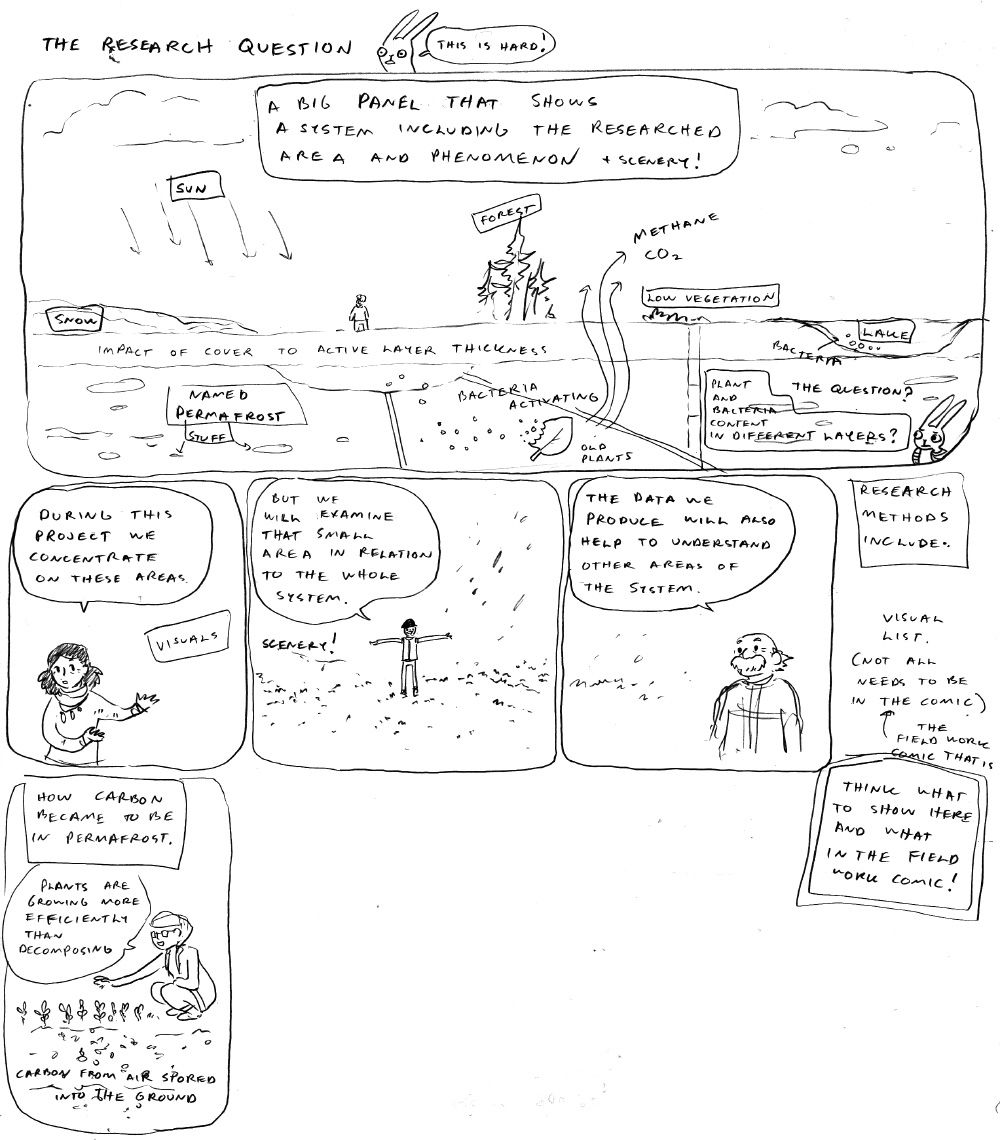 THE RESEARCH QUESTION
THIS IS HARD!
A BIG PANEL THAT SHOWS
A SYSTEM INCLUDING THE RESEARCHED
AREA AND PHENOMENON + SCENERY!
SUN
FOREST
METHANE
CO2
SNOW
LOW VEGETATION
LAKE
BACTERIA
IMPACT OF COVER TO ACTIVE LAYER THICKNESS
NAMED
PERMAFROST
STUFF
BACTERIA
ACTIVATING
OLD
PLANTS
THE QUESTION?
PLANT
AND
BACTERIA
CONTENT
IN DIFFERENT LAYERS?
DURING THIS
PROJECT WE
CONCENTRATE
ON THESE AREAS.
VISUALS
BUT WE
WILL EXAMINE
THAT SMALL
AREA IN RELATION
TO THE WHOLE
SYSTEM.
SCENERY!
THE DATA WE
PRODUCE WILL ALSO
HELP TO UNDERSTAND
OTHER AREAS OF
THE SYSTEM.
RESEARCH
METHODS
INCLUDE:
VISUAL
LIST.
(NOT ALL
NEEDS TO BE
IN THE COMIC)
THE
FIELD WORK
COMIC THAT IS
THINK WHAT
TO SHOW HERE
AND WHAT
IN THE FIELD
WORK COMIC!
HOW CARBON
BECAME TO BE
IN PERMAFROST.
PLANTS ARE
GROWING MORE
EFFICIENTLY
THAN
DECOMPOSING
CARBON FROM AIR SPORED
INTO THE GROUND